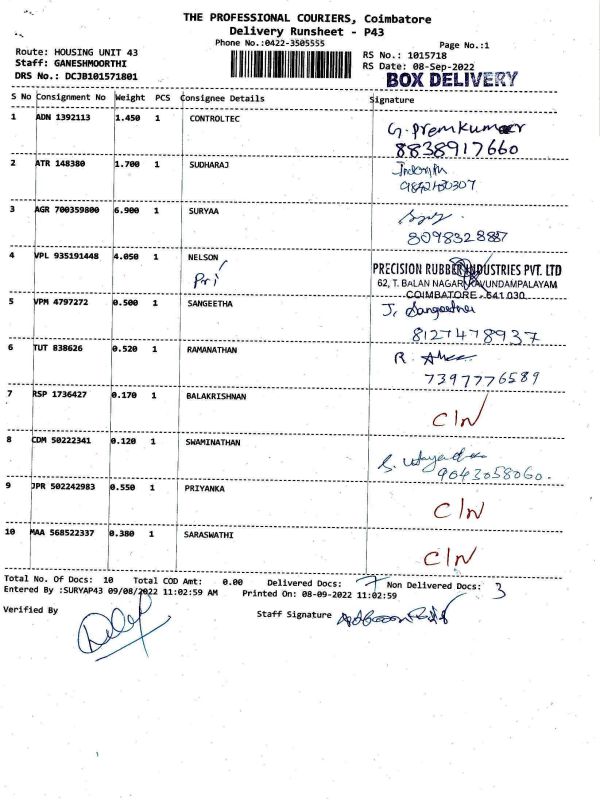 THE PROFESSIONAL COURIERS, Coimbatore
Delivery Runsheet - P43
Phone No.:0422-3505555
Page No.:1
Route: HOUSING UNIT 43
RS No.: 1015718
Staff: GANESHMOORTHI
RS Date: 08-Sep-2022
DRS No.: DCJB101571801
BOX DELIVERY
S No Consignment No Weight PCS Consignee Details Signature
1 ADN 1392113 1.450 1 CONTROLTEC G. Premkumar
8838917660
2 ATR 148380 1.700 1 SUDHARAJ
3 AGR 700359800 6.900 1 SURYAA
8098328887
4 VPL 935191448 4.050 1 NELSON PRECISION RUBBER INDUSTRIES PVT. LTD
Pri 62, T. BALAN NAGAR, KAVUNDAMPALAYAM
COIMBATORE - 641 030
5 VPM 4797272 0.500 1 SANGEETHA J. Sangeetha
8127478937
6 TUT 838626 0.520 1 RAMANATHAN R.
7397776589
7 RSP 1736427 0.170 1 BALAKRISHNAN C/N
8 CDM 50222341 0.120 1 SWAMINATHAN S.
9043058060.
9 JPR 502242983 0.550 1 PRIYANKA C/N
10 MAA 568522337 0.380 1 SARASWATHI C/N
Total No. Of Docs: 10 Total COD Amt: 0.00 Delivered Docs: 7 Non Delivered Docs: 3
Entered By :SURYAP43 09/08/2022 11:02:59 AM Printed On: 08-09-2022 11:02:59
Verified By Staff Signature